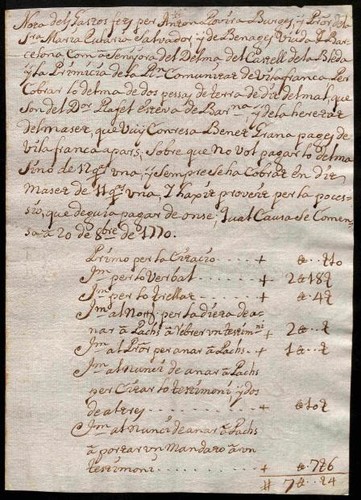 Nota dels gastos fets per Anton Rovira Burges, y Pror. de
Sra. Maria Salvador, y de Benages Viuda Bar
celona Com â Señyora del Delma del Castell de la Bleda
y la Primicia de la Rnt. Comunitat de Vilafranca Per
Cobrar lo delma de dos pessas de terra de dit delmal, que
son del Dor. Pujet Esteva de Barna. y de la heretat
del maser, que vuy Conresa Benet Grana pages de
Vilafranca apars; Sobre que no Vol pagar lo delma
Sino de 12 qs. vna, y sempre se ha Cobrat en dit
Maser de 11 qs. vna, y hagut provehir per la poces-
sio, que degui a pagar de onse; Qual Causa se Comen-
sa â 20 de 8bre. de 1770.
Primo per la Citacio - - - - + £ .. 210
Jm. per lo Verbal - - - - + 2£ 182
Jm. per lo Trellat - - - - + £ .. 42
Jm. al Nory. per la dieta de a-
nar â Lachs â rebrer vn testimoni + 2£ .. 2
Jm. al Pror. per anar â Lachs - + 1£ .. 2
Jm. al nunci de anar â Lachs
per Citar lo testimoni y dos
de atrey - - - - + £ 102
Jm. al nunci de anar â Lachs
â portar vn Mandato â vn
testimoni - - - - + £ .. 726
# 7£ .. 24